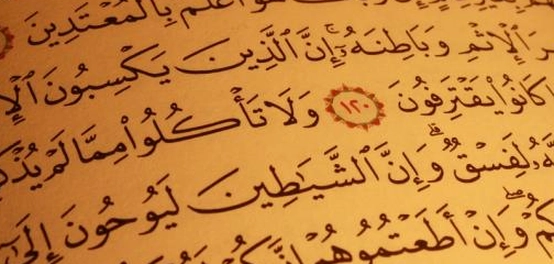 أَعْلَمُ بِٱلْمُعْتَدِينَ
رَ ٱلْإِثْمِ وَبَاطِنَهُۥٓ ۚ إِنَّ ٱلَّذِينَ يَكْسِبُونَ ٱلْإِ
كَانُوا۟ يَقْتَرِفُونَ ١٢٠ وَلَا تَأْكُلُوا۟ مِمَّا لَمْ يُذْكَ
هُۥ لَفِسْقٌ ۗ وَإِنَّ ٱلشَّيَٰطِينَ لَيُوحُونَ إِلَىٰٓ
كُمْ ۖ وَإِنْ أَطَعْتُمُوهُمْ